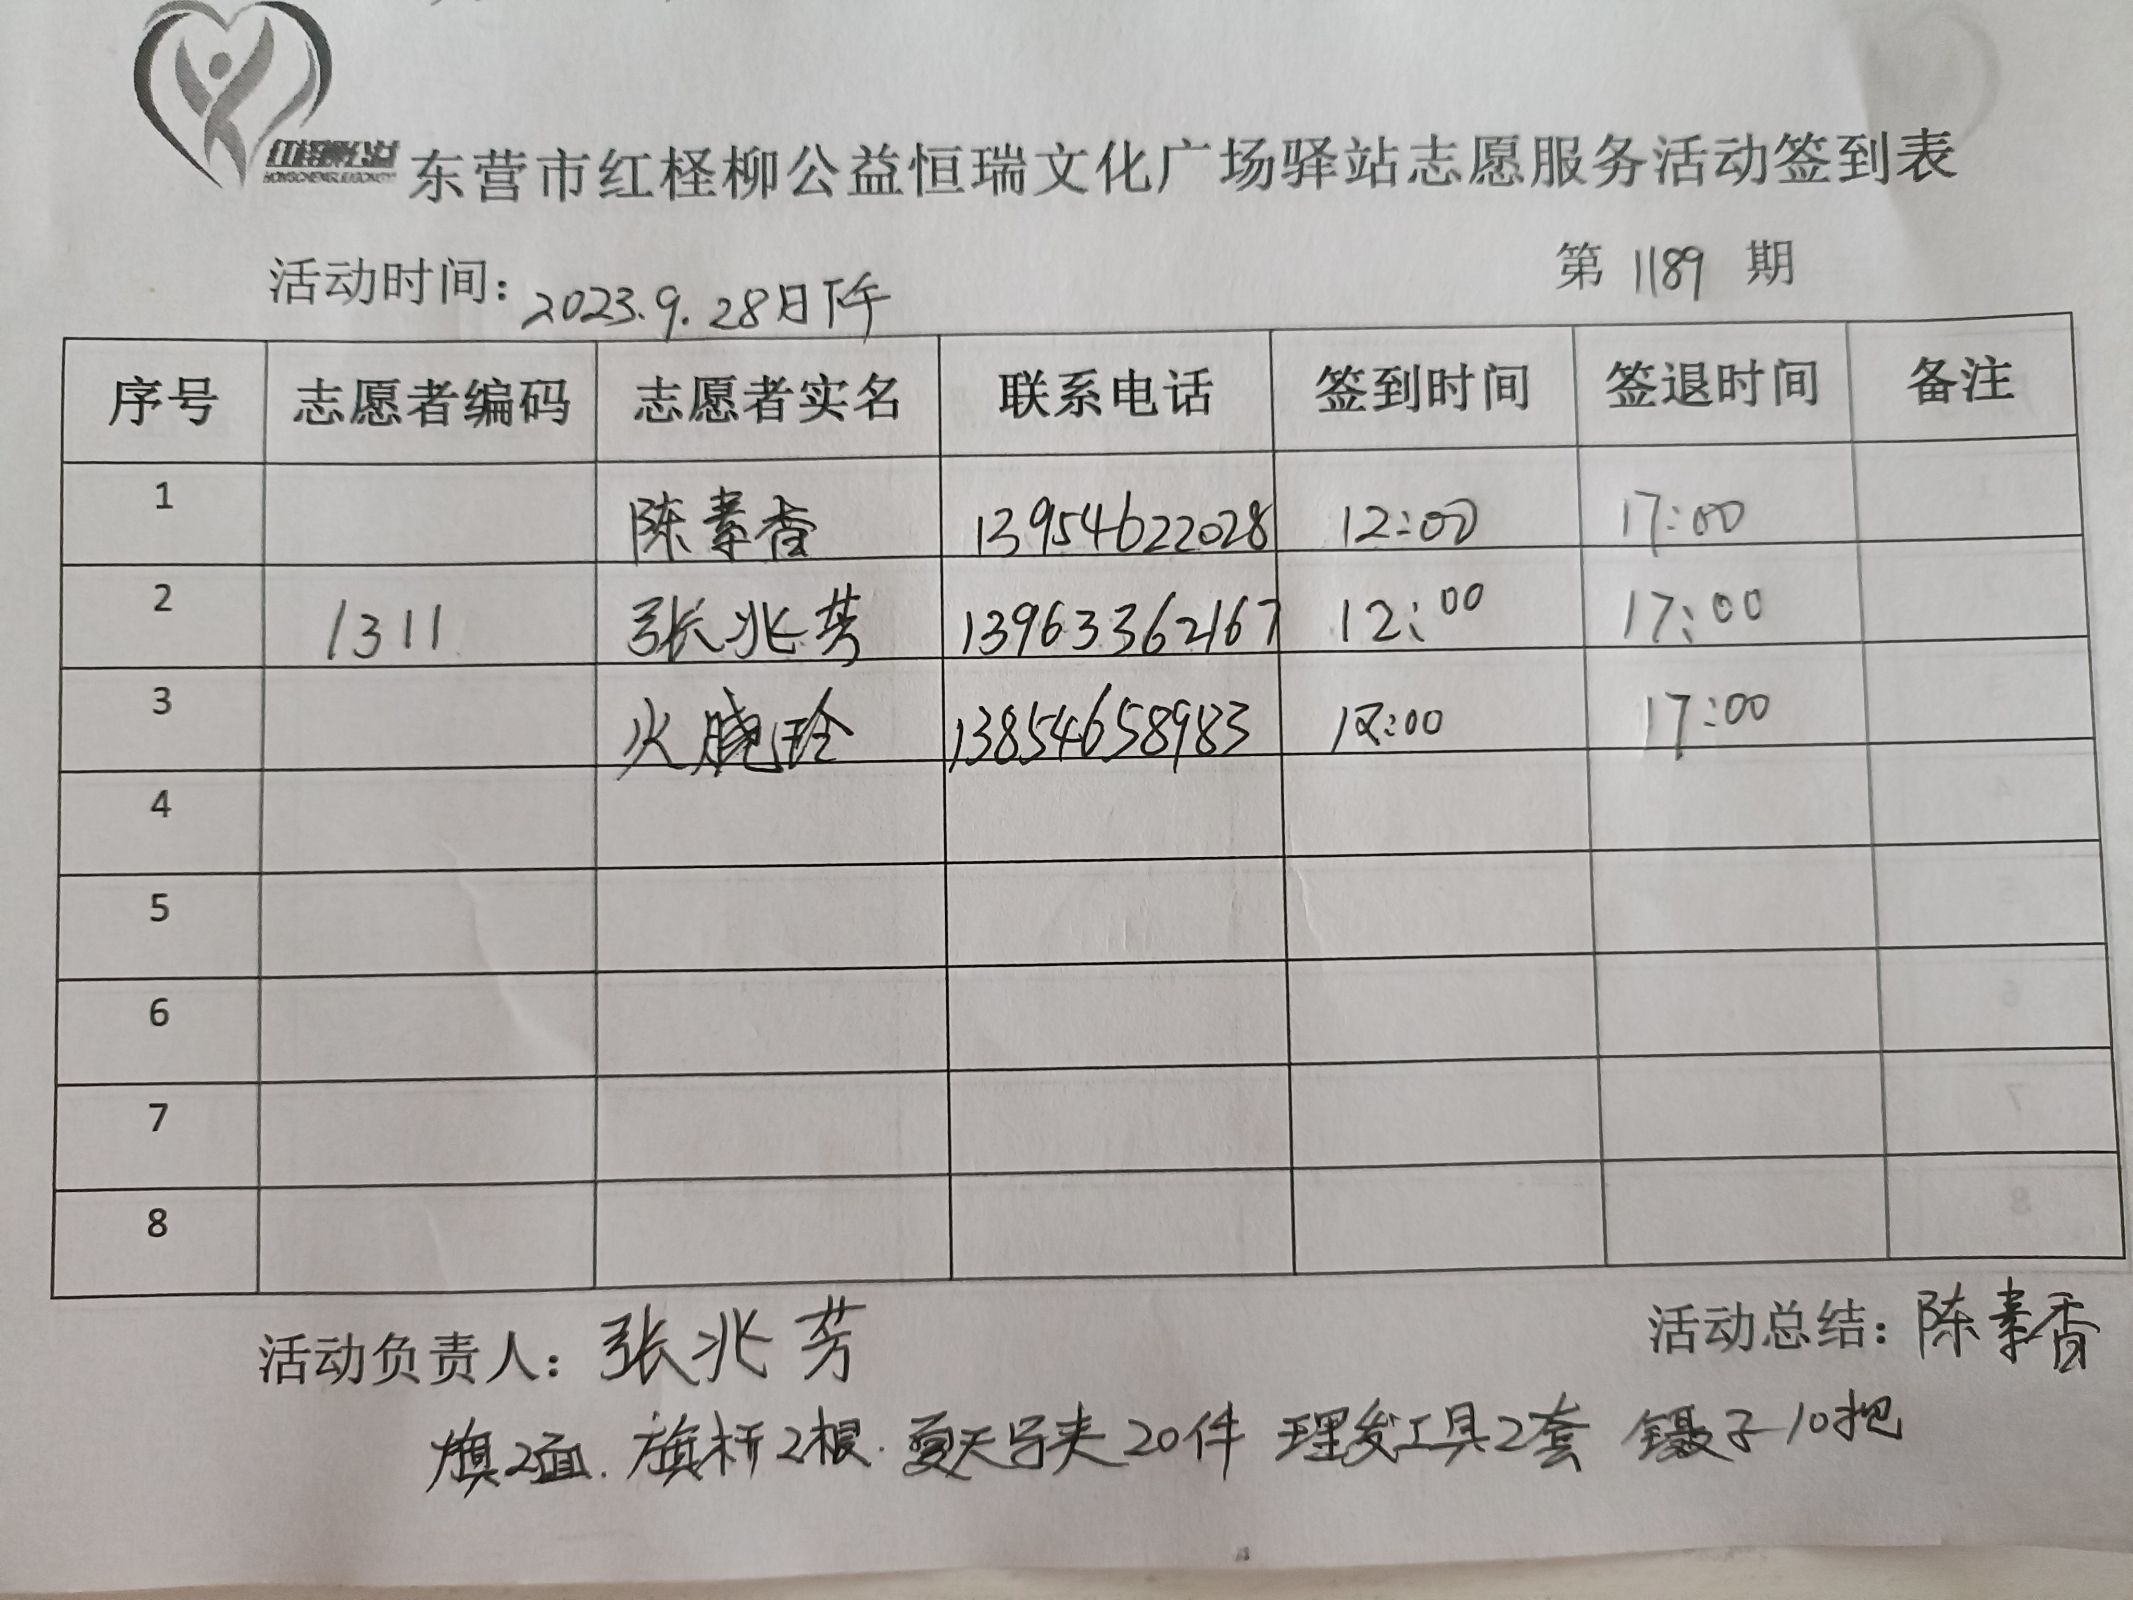 红柽柳公益
东营市红柽柳公益恒瑞文化广场驿站志愿服务活动签到表
活动时间: 2023.9.28日下午 第 1189 期
序号 志愿者编码 志愿者实名 联系电话 签到时间 签退时间 备注
1 陈素香 13954622028 12:00 17:00
2 1311 张兆芳 13963362167 12:00 17:00
3 火晓玲 13854658983 12:00 17:00
4
5
6
7
8
活动负责人: 张兆芳 活动总结: 陈素香
旗2面. 旗杆2根. 夏天马夹20件 理发工具2套 镊子10把